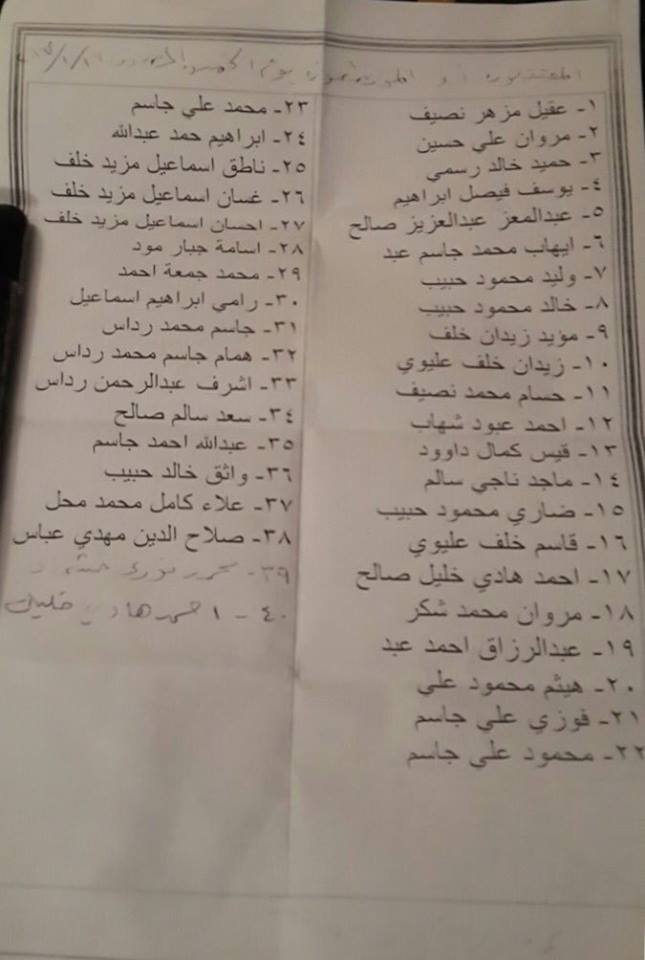 ١- عقيل مزهر نصيف
٢- مروان علي حسين
٣- حميد خالد رسمي
٤- يوسف فيصل ابراهيم
٥- عبدالمعز عبدالعزيز صالح
٦- ايهاب محمد جاسم عبد
٧- وليد محمود حبيب
٨- خالد محمود حبيب
٩- مؤيد زيدان خلف
١٠- زيدان خلف عليوي
١١- حسام محمد نصيف
١٢- احمد عبود شهاب
١٣- قيس كمال داوود
١٤- ماجد ناجي سالم
١٥- ضاري محمود حبيب
١٦- قاسم خلف عليوي
١٧- احمد هادي خليل صالح
١٨- مروان محمد شكر
١٩- عبدالرزاق احمد عبد
٢٠- هيثم محمود علي
٢١- فوزي علي جاسم
٢٢- محمود علي جاسم
٢٣- محمد علي جاسم
٢٤- ابراهيم حمد عبدالله
٢٥- ناطق اسماعيل مزيد خلف
٢٦- غسان اسماعيل مزيد خلف
٢٧- احسان اسماعيل مزيد خلف
٢٨- اسامة جبار مود
٢٩- محمد جمعة احمد
٣٠- رامي ابراهيم اسماعيل
٣١- جاسم محمد رداس
٣٢- همام جاسم محمد رداس
٣٣- اشرف عبدالرحمن رداس
٣٤- سعد سالم صالح
٣٥- عبدالله احمد جاسم
٣٦- واثق خالد حبيب
٣٧- علاء كامل محمد محل
٣٨- صلاح الدين مهدي عباس
٣٩-
٤٠- احمد هادي خليل